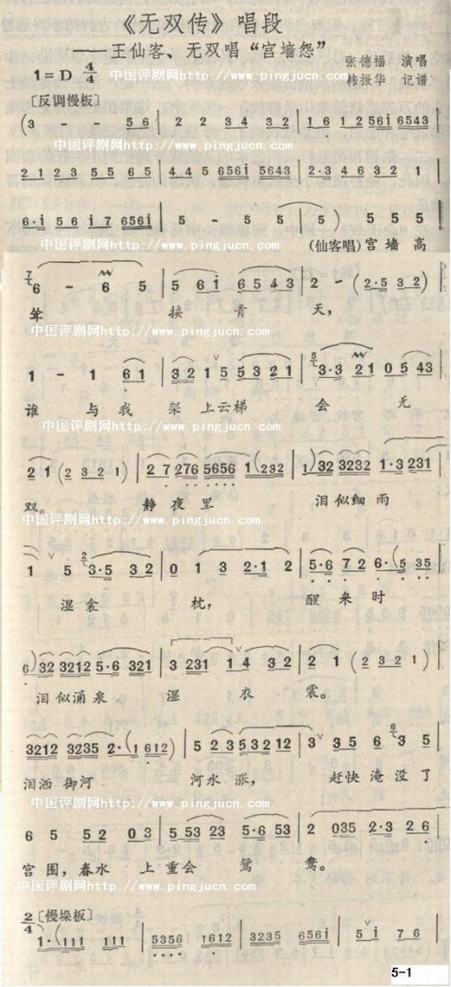 《无双传》唱段
——王仙客、无双唱“宫墙怨”
1=D 4/4
张德福 演唱
韩振华 记谱
中国评剧网http://www.pingjucn.com
[反调慢板]
(3 - - 5 6 | 2 2 3 4 3 2 | 1 6 1 2 5 6 i 6 5 4 3 |
2 1 2 3 5 5 6 5 | 4 4 5 6 5 6 i 5 6 4 3 | 2·3 4 6 3 2 1 |
6·i 5 6 i 7 6 5 6 i | 5 - 5 5 | 5 ) 5 5 5 |
中国评剧网http://www.pingjucn.com
(仙客唱)宫墙高
6 - 6 5 | 5 6 i 6 5 4 3 | 2 - (2·5 3 2) |
耸 接 青 天,
中国评剧网http://www.pingjucn.com
1 - 1 6 1 | 3 2 1 5 5 3 2 1 | 3·3 2 1 0 5 4 3 |
谁 与 我 架 上云梯 会 无
中国评剧网http://www.pingjucn.com
2 1 (2 3 2 1) | 2 7 2 7 6 5 6 5 6 1 (2 3 2 | 1) 3 2 3 2 3 2 1·3 2 3 1 |
双。 静夜里 泪似细雨
中国评剧网http://www.pingjucn.com
1 5 3·5 3 2 | 0 1 3 2·1 2 | 5·6 7 2 6·(5 3 5 |
湿衾 枕, 醒来时
6) 3 2 3 2 1 2 5·6 3 2 1 | 3 2 3 1 1 4 3 2 | 2 1 (2 3 2 1) |
泪似涌泉 湿 衣 裳。
中国评剧网http://www.pingjucn.com
3 2 1 2 3 2 3 5 2·(1 6 1 2) | 5 2 3 5 3 5 2 1 | 3 3 5 6 3 5 |
泪洒御河 河水涨, 赶快淹没了
中国评剧网http://www.pingjucn.com
6 5 5 2 0 3 | 5 5 5 3 2 3 5·6 5 3 | 2 0 3 5 2·3 2 6 |
宫围,春水 上重会 鸳 鸯。
中国评剧网http://www.pingjucn.com
2/4 [慢垛板]
1·(1 1 1 1 1 1 | 5 3 5 6 1 6 1 2 | 3 2 3 5 6 5 6 i | 5 i 7 6 |
5-1